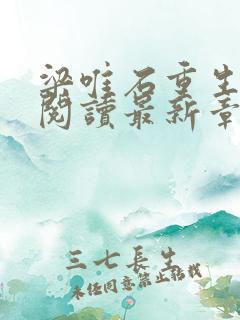 梁唯石重生
閱讀最新章
三七長生
未经同意禁止转载